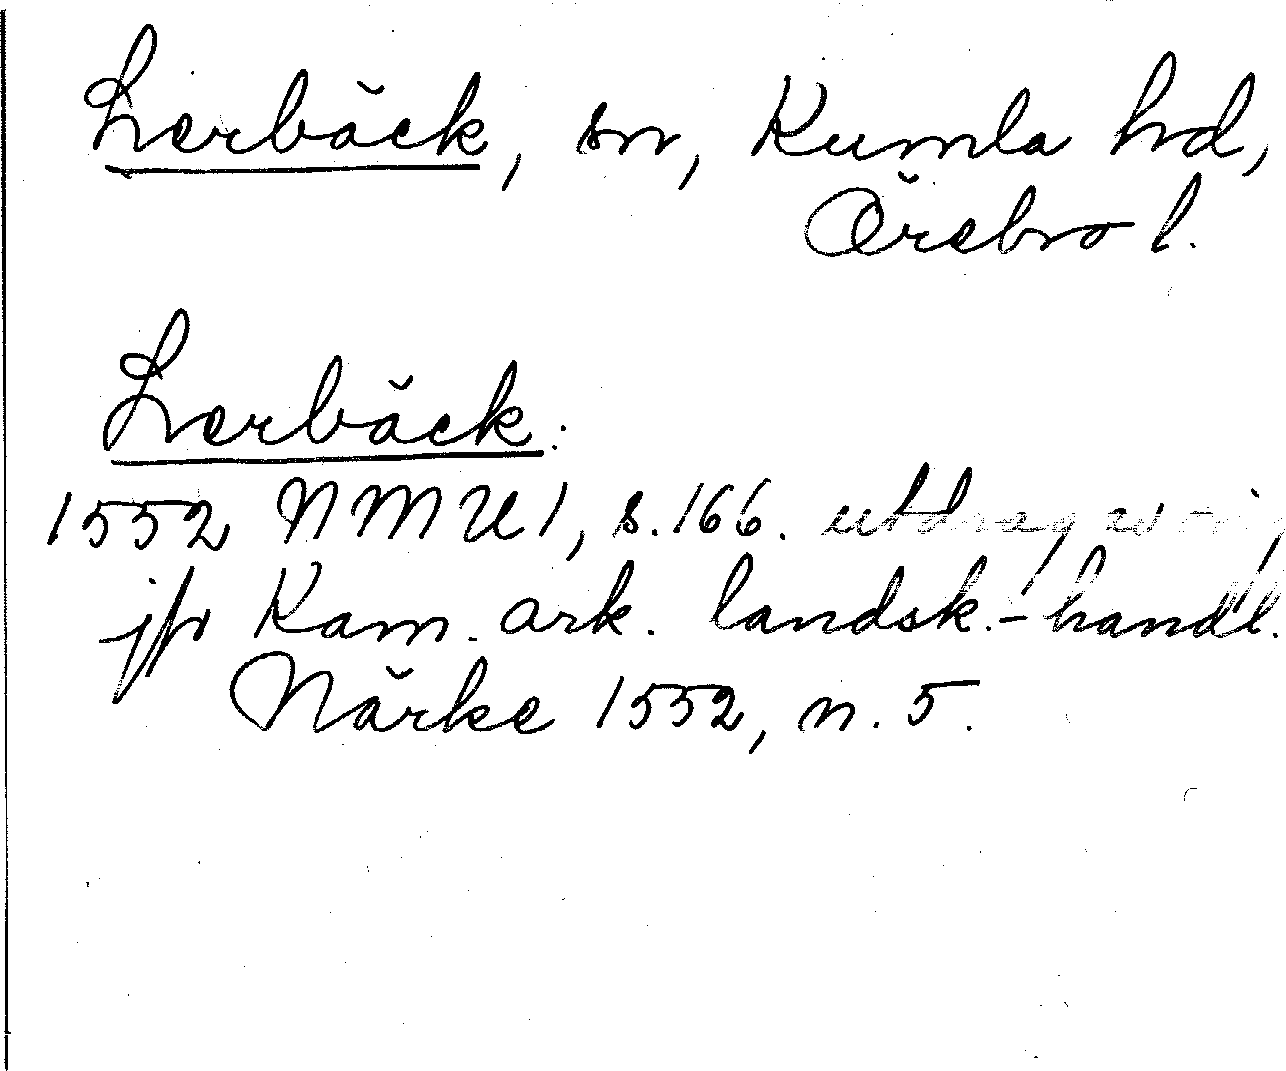 Lerbäck, sn, Kumla hd,
Örebro l.
Lerbäck:
1552 NMU 1, s. 166. utdrag av
jfr Kam. ark. landsk.-handl.
Närke 1552, n. 5.